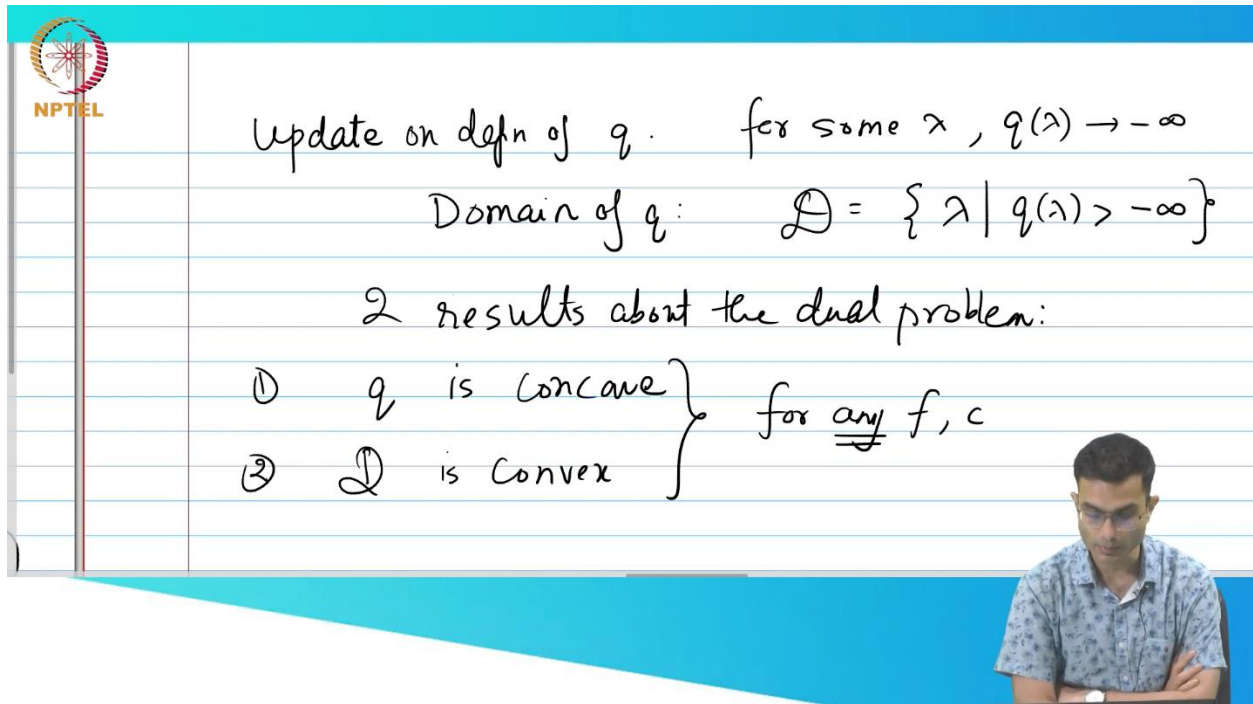 NPTEL
Update on defn of q. for some λ, q(λ) → -∞
Domain of q: 𝒟 = { λ | q(λ) > -∞}
2 results about the dual problem:
① q is concave
② 𝒟 is convex
for any f, c